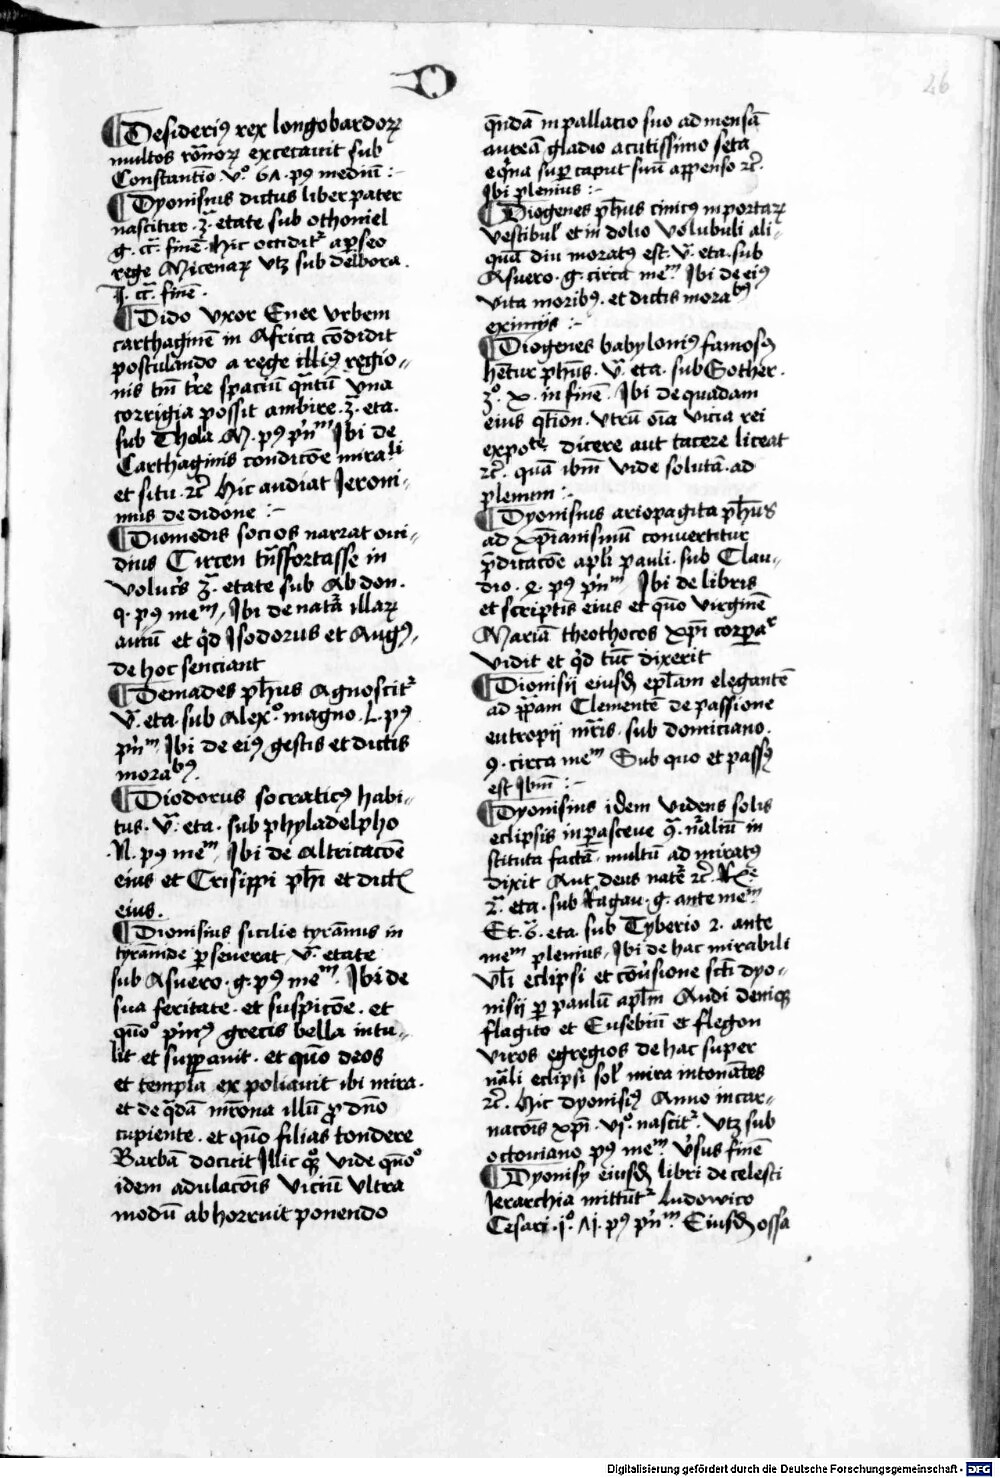 D
26
¶ Desideriꝰ rex longobardoꝝ
multos rōnoꝝ excecauit sub
Constantīo. vͦ. 6Λ. pꝰ mediū :~
¶ Dyonisius dictus liber pater
nascitur. ꝫ. etate sub othoniel
g. cͣ. finē. hic occiditᷣ a pseo
rege Micenaꝝ vtꝫ sub delbora.
J. cͣ. finē.
¶ Dido vxor Enee vrbem
carthaginē in Africa cōdidit
postulando a rege illiꝰ regio-
nis tm̄ tr̄e spaciū qͣntū vna
corrigia possit ambire. ꝫ. eta.
sub Thola. M. pꝰ pn̄ᵐ Ibi de
Carthaginis condicōe miraˡⁱ
et situ. ⁊c̄ Hic audiat Jeroni-
mus de didone :~
¶ Diomedis socios narrat oui-
dius Circen tn̄sfortasse in
volucͥs ꝫ. etate sub Abdon.
q. pꝰ meᵐ, Ibi de natā illaꝝ
auiū et qͥd Isodorus et Augꝰ,
de hoc senciant
¶ Demades ph̄us agnoscitᷣ
v̄. eta. sub Alexͦ. magno. L. pꝰ
pn̄ᵐ, Ibi de eiꝰ gestis et dictis
moraᵇꝰ.
¶ Diodorus socraticꝰ habi-
tus. v̄. eta. sub phyladelpho
.N. pꝰ meᵐ, Ibi de altricacōe
eius et Crisippi ph̄i et dictꝭ
eius.
¶ Dionisius sicilie tyrānus in
tyrānide ꝑseuerat. v̄. etate
sub Asuero. g. pꝰ meᵐ. Ibi de
sua feritate. et suspicōe. et
quōͦ pͥmꝰ grecis bella intu-
lit et suꝑauit. et quō deos
et templa expoliauit ibi mira.
et de qͣdā mr̄ona illū ꝓ dn̄o
cupiente. et quō filias tondere
Barbā docuit Illic qꝫͦ vide quōͦ
idem adulacōis viciū vltra
modū abhorruit ponendo
qn̄dā in pallacio suo ad mensā
aureā gladio acutissimo seta
eqͥna suꝑ caput suū appenso ⁊c̄.
Ibi plenius :~
¶ Diogenes ph̄us cinicꝰ in portaꝝ
vestibulˡ et in dolio volubuli ali-
quā diu moratꝰ est. v̄. eta. sub
Asuero. g. circa meᵐ Ibi de eiꝰ
vita moribꝰ. et dictis moraᵇꝰ
eximijs :~
¶ Diogenes babyloniꝰ famosꝰ
hētur ph̄us. v̄. eta. sub Sother.
ꝫͦ. x. in finē. Ibi de quadam
eius qt̄ion. vtrū oīa vicia rei
expoᵗᵉ. dicere aut tacere liceat
⁊c̄. quā ibm̄ vide solutā. ad
plenum :~
¶ Dyonisius ariopagita ph̄us
ad xp̄ianisimū conuertitur
p̄dicacōe apl̄i pauli. sub Clau-
dio. e. pꝰ pn̄ᵐ, Ibi de libris
et scriptis eius et quō virginē
Mariā theothocos xp̄i corpaʳ
vidit et qͥd tūc dixerit
¶ Dionisij eiusdꝫ epl̄am elegantē
ad ppam Clementē de passione
eutropij mr̄is. sub domiciano.
9. circa meᵐ Sub quo et passꝰ
est Ibm̄ :~
¶ Dyonisius idem videns solis
eclipsis in ꝑasceue ꝯ. nr̄aliū in
stituta factā. multū admiratꝰ
dixit Aut deus natē ⁊c̄. Rͤ.
2. eta. sub Ragau. g. ante meᵐ
Et. 6. eta. sub Tyberio 2. ante
meᵐ plenius, Ibi de hac mirabili
vl̄i eclipsi et cōūsione sct̄i dyo-
nisij ꝑ paulū apl̄m Audi deniqꝫ
flagito et Eusebiū et flegon
viros egregios de hac super
nāli eclipsi solˡ mira intonātes
⁊c̄. Hic dyonisiꝰ Anno incar-
nacōis xp̄i. vjͦ. nascitᷣ. vtꝫ sub
octouiano pꝰ meᵐ v̄sus finē
¶ Dyonisy eiusdꝫ libri de celesti
Jerarchia mittūtᷣ Ludowico
Cesari. jͦ. Λj. pꝰ pn̄ᵐ. Eiusdꝫ ossa
Digitalisierung gefördert durch die Deutsche Forschungsgemeinschaft - DFG